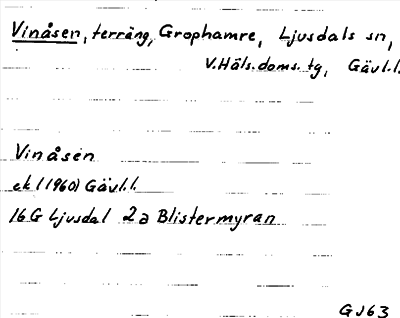 Vinåsen, terräng, Grophamre, Ljusdals sn,
V.Häls.doms.tg, Gävl.l.
Vinåsen
ek (1960) Gävl.l.
16 G Ljusdal 2a Blistermyran
GJ63